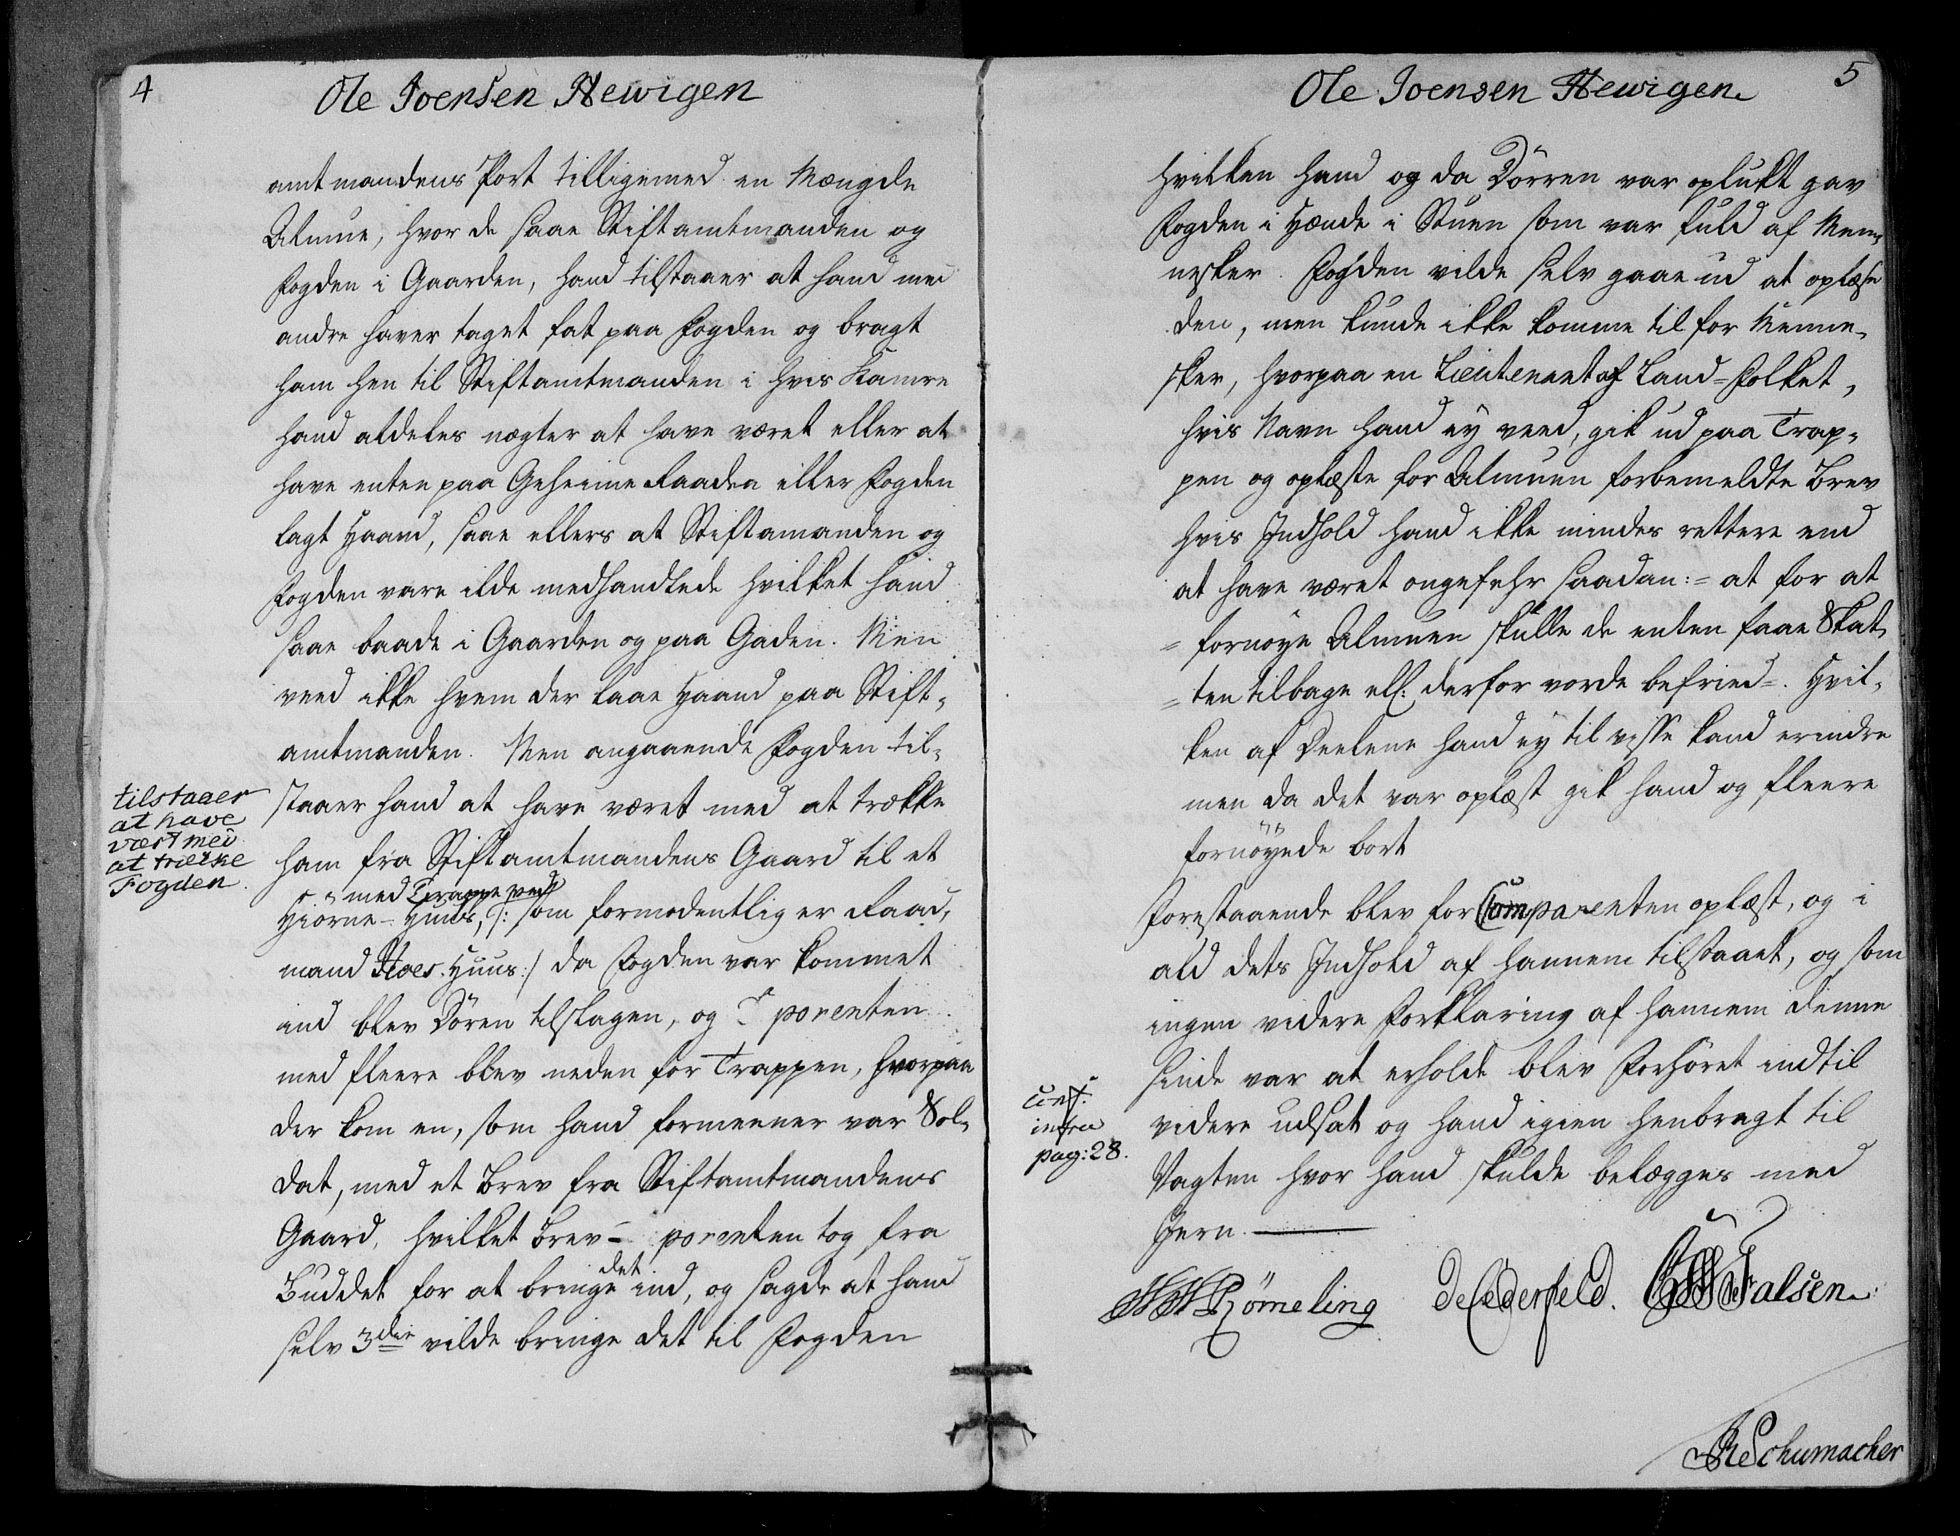 4
Ole Joensen Hewigen
amtmandens Port tilligemed en Mængde
Almue, hvor de saae Stiftamtmanden og
Fogden i Gaarden, hand tilstaaer at hand med
andre haver taget fat paa Fogden og bragt
ham hen til Stiftamtmanden i hvis Kamre
hand aldeles nægter at have været eller at
have enten paa Geheime Raaden eller Fogden
lagt Haand, saae ellers at Stiftamanden og
Fogden vare ilde medhandlede hvilket hand
saae baade i Gaarden og paa Gaden. Men
veed ikke hvem der laae Haand paa Stift-
amtmanden. Men angaaende Fogden til-
staaer hand at have været med at trække
ham fra Stiftamtmandens Gaard til et
med Trappe ved
Hiørne-Huus, /: som formodentlig er Raad-
mand Hoes Huus :/ da Fogden var kommet
ind blev Dören tilslagen, og C parenten
med fleere blev neden for Trappen, hvorpaa
der kom en, som hand formeener var Sol-
dat, med et Brev fra Stiftamtmandens
Gaard, hvilket Brev C parenten tog fra
Buddet for at bringe det ind, og sagde at hand
selv 3die vilde bringe det til Fogden
tilstaaer
at have
vært med
at trække
Fogden.
5
Ole Joensen Hewigen
hvilken hand og da Dörren var oplukt gav
Fogden i Hænde i Stuen som var fuld af Men-
nesker. Fogden vilde selv gaae ud at oplæse
den, men kunde ikke komme til for Menne-
sker, hvorpaa en Lieutenant af Land-Folket,
hvis Navn hand ey veed, gik ud paa Trap-
pen og oplæste for Almuen forbemeldte Brev
hvis Indhold hand ikke mindes rettere end
at have været ongefehr saadan:= at for at
= fornøye Almuen skulle de enten faae Skat-
= ten tilbage ell: derfor vorde befried=. Hvil-
ken af Deelene hand ey til visse kand erindre
men da det var oplæst gik hand og fleere
fornøyede bort
Forestaaende blev for Comparenten oplæst, og i
ald dets Indhold af hannem tilstaaet, og som
ingen videre Forklaring af hannem denne
sinde var at erholde blev Forhöret indtil
videre udsat og hand igien henbragt til
Vagten hvor hand skulde belægges med
Jern.
conf.
infra
pag: 28.
Römeling de Cederfeld. Falsen.
Schumacher